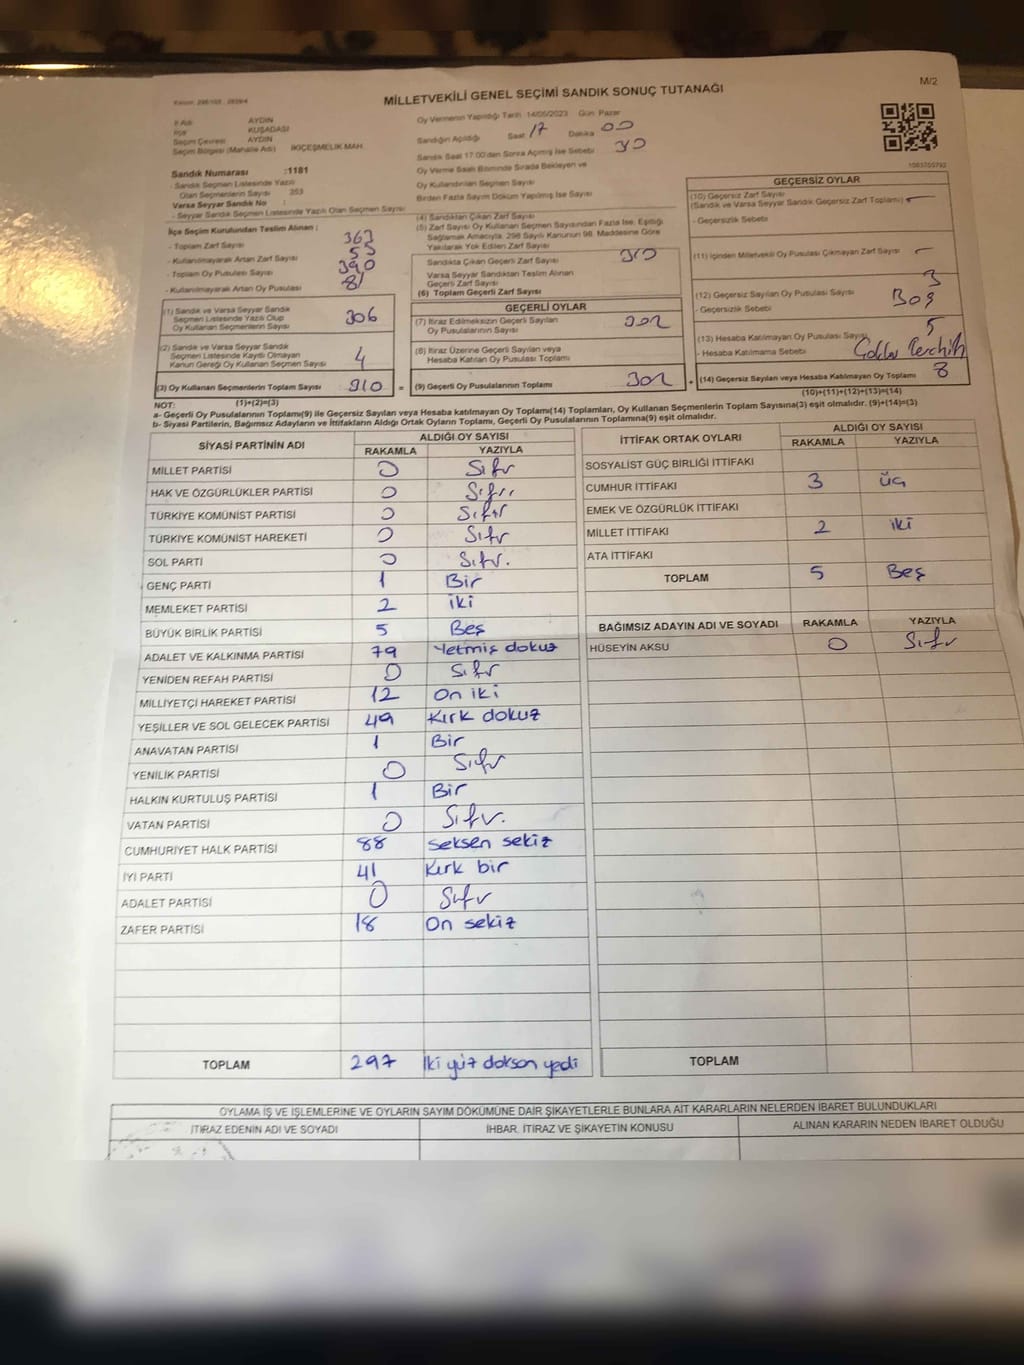 M/2
MİLLETVEKİLİ GENEL SEÇİMİ SANDIK SONUÇ TUTANAĞI
İl Adı AYDIN
İlçe KUŞADASI
Seçim Çevresi AYDIN
Seçim Bölgesi (Mahalle Adı) İKİÇEŞMELİK MAH.
Sandık Numarası :1181
- Sandık Seçmen Listesinde Yazılı
Olan Seçmenlerin Sayısı 353
Varsa Seyyar Sandık No :
- Seyyar Sandık Seçmen Listesinde Yazılı Olan Seçmen Sayısı
İlçe Seçim Kurulundan Teslim Alınan :
- Toplam Zarf Sayısı 363
- Kullanılmayarak Artan Zarf Sayısı 53
- Toplam Oy Pusulası Sayısı 390
- Kullanılmayarak Artan Oy Pusulası 81
(1) Sandık ve Varsa Seyyar Sandık
Seçmen Listesinde Yazılı Olup
Oy Kullanan Seçmenlerin Sayısı 306
(2) Sandık ve Varsa Seyyar Sandık
Seçmen Listesinde Kayıtlı Olmayan
Kanun Gereği Oy Kullanan Seçmen Sayısı 4
(3) Oy Kullanan Seçmenlerin Toplam Sayısı 310
(1)+(2)=(3)
Oy Vermenin Yapıldığı Tarih 14/05/2023 Gün Pazar
Sandığın Açıldığı Saat 17 Dakika 00
Sandık Saat 17:00'dan Sonra Açılmış İse Sebebi
Oy Verme Saati Bitiminde Sırada Bekleyen ve
Oy Kullandırılan Seçmen Sayısı
Birden Fazla Sayım Döküm Yapılmış İse Sayısı
(4) Sandıktan Çıkan Zarf Sayısı 310
(5) Zarf Sayısı Oy Kullanan Seçmen Sayısından Fazla İse, Eşitliği
Sağlamak Amacıyla, 298 Sayılı Kanunun 98. Maddesine Göre
Yakılarak Yok Edilen Zarf Sayısı
Sandıkta Çıkan Geçerli Zarf Sayısı 310
Varsa Seyyar Sandıktan Teslim Alınan
Geçerli Zarf Sayısı
(6) Toplam Geçerli Zarf Sayısı
GEÇERLİ OYLAR
(7) İtiraz Edilmeksizin Geçerli Sayılan
Oy Pusulalarının Sayısı 302
(8) İtiraz Üzerine Geçerli Sayılan veya
Hesaba Katılan Oy Pusulası Toplamı
= (9) Geçerli Oy Pusulalarının Toplamı 302
1083755792
GEÇERSİZ OYLAR
(10) Geçersiz Zarf Sayısı
(Sandık ve Varsa Seyyar Sandık Geçersiz Zarf Toplamı) -
- Geçersizlik Sebebi
(11) İçinden Milletvekili Oy Pusulası Çıkmayan Zarf Sayısı -
(12) Geçersiz Sayılan Oy Pusulası Sayısı 3
- Geçersizlik Sebebi Boş
(13) Hesaba Katılmayan Oy Pusulası Sayısı 5
- Hesaba Katılmama Sebebi
+ (14) Geçersiz Sayılan veya Hesaba Katılmayan Oy Toplamı 8
(10)+(11)+(12)+(13)=(14)
NOT:
a- Geçerli Oy Pusulalarının Toplamı(9) ile Geçersiz Sayılan veya Hesaba katılmayan Oy Toplamı(14) Toplamları, Oy Kullanan Seçmenlerin Toplam Sayısına(3) eşit olmalıdır. (9)+(14)=(3)
b- Siyasi Partilerin, Bağımsız Adayların ve İttifakların Aldığı Ortak Oyların Toplamı, Geçerli Oy Pusulalarının Toplamına(9) eşit olmalıdır.
SİYASİ PARTİNİN ADI ALDIĞI OY SAYISI
RAKAMLA YAZIYLA
MİLLET PARTİSİ 0 Sıfır
HAK VE ÖZGÜRLÜKLER PARTİSİ 0 Sıfır
TÜRKİYE KOMÜNİST PARTİSİ 0 Sıfır
TÜRKİYE KOMÜNİST HAREKETİ 0 Sıfır
SOL PARTİ 0 Sıfır.
GENÇ PARTİ 1 Bir
MEMLEKET PARTİSİ 2 iki
BÜYÜK BİRLİK PARTİSİ 5 Beş
ADALET VE KALKINMA PARTİSİ 79 Yetmiş dokuz
YENİDEN REFAH PARTİSİ 0 Sıfır
MİLLİYETÇİ HAREKET PARTİSİ 12 On iki
YEŞİLLER VE SOL GELECEK PARTİSİ 49 Kırk dokuz
ANAVATAN PARTİSİ 1 Bir
YENİLİK PARTİSİ 0 Sıfır
HALKIN KURTULUŞ PARTİSİ 1 Bir
VATAN PARTİSİ 0 Sıfır.
CUMHURİYET HALK PARTİSİ 88 Seksen sekiz
İYİ PARTİ 41 Kırk bir
ADALET PARTİSİ 0 Sıfır
ZAFER PARTİSİ 18 On sekiz
TOPLAM 297 İki yüz doksan yedi
İTTİFAK ORTAK OYLARI ALDIĞI OY SAYISI
RAKAMLA YAZIYLA
SOSYALİST GÜÇ BİRLİĞİ İTTİFAKI
CUMHUR İTTİFAKI 3 üç
EMEK VE ÖZGÜRLÜK İTTİFAKI
MİLLET İTTİFAKI 2 iki
ATA İTTİFAKI
TOPLAM 5 Beş
BAĞIMSIZ ADAYIN ADI VE SOYADI RAKAMLA YAZIYLA
HÜSEYİN AKSU 0 Sıfır
TOPLAM
OYLAMA İŞ VE İŞLEMLERİNE VE OYLARIN SAYIM DÖKÜMÜNE DAİR ŞİKAYETLERLE BUNLARA AİT KARARLARIN NELERDEN İBARET BULUNDUKLARI
İTİRAZ EDENİN ADI VE SOYADI İHBAR, İTİRAZ VE ŞİKAYETİN KONUSU ALINAN KARARIN NEDEN İBARET OLDUĞU